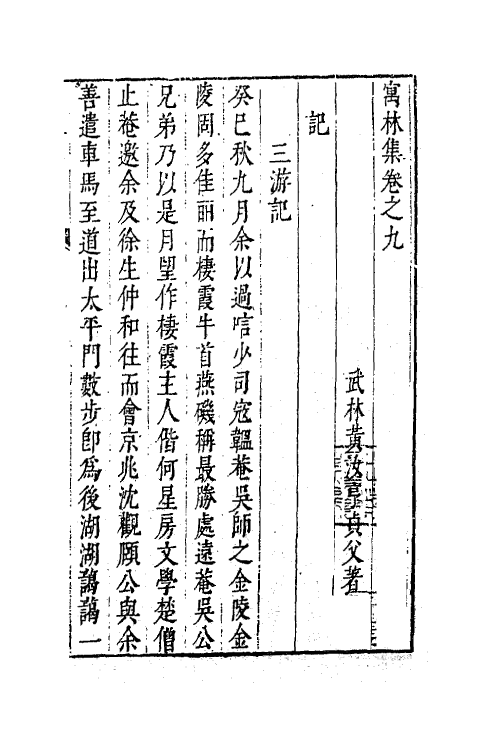 寓林集卷之九
武林黃汝亨貞父著
記
三游記
癸巳秋九月余以過唁少司寇韞菴吳師之金陵金
陵固多佳麗而棲霞牛首燕磯稱最勝處遠菴吳公
兄弟乃以是月望作棲霞主人偕何星房文學楚僧
止菴邀余及徐生仲和往而會京兆沈觀頤公與余
善遣車馬至道出太平門數步卽為後湖湖藹藹一